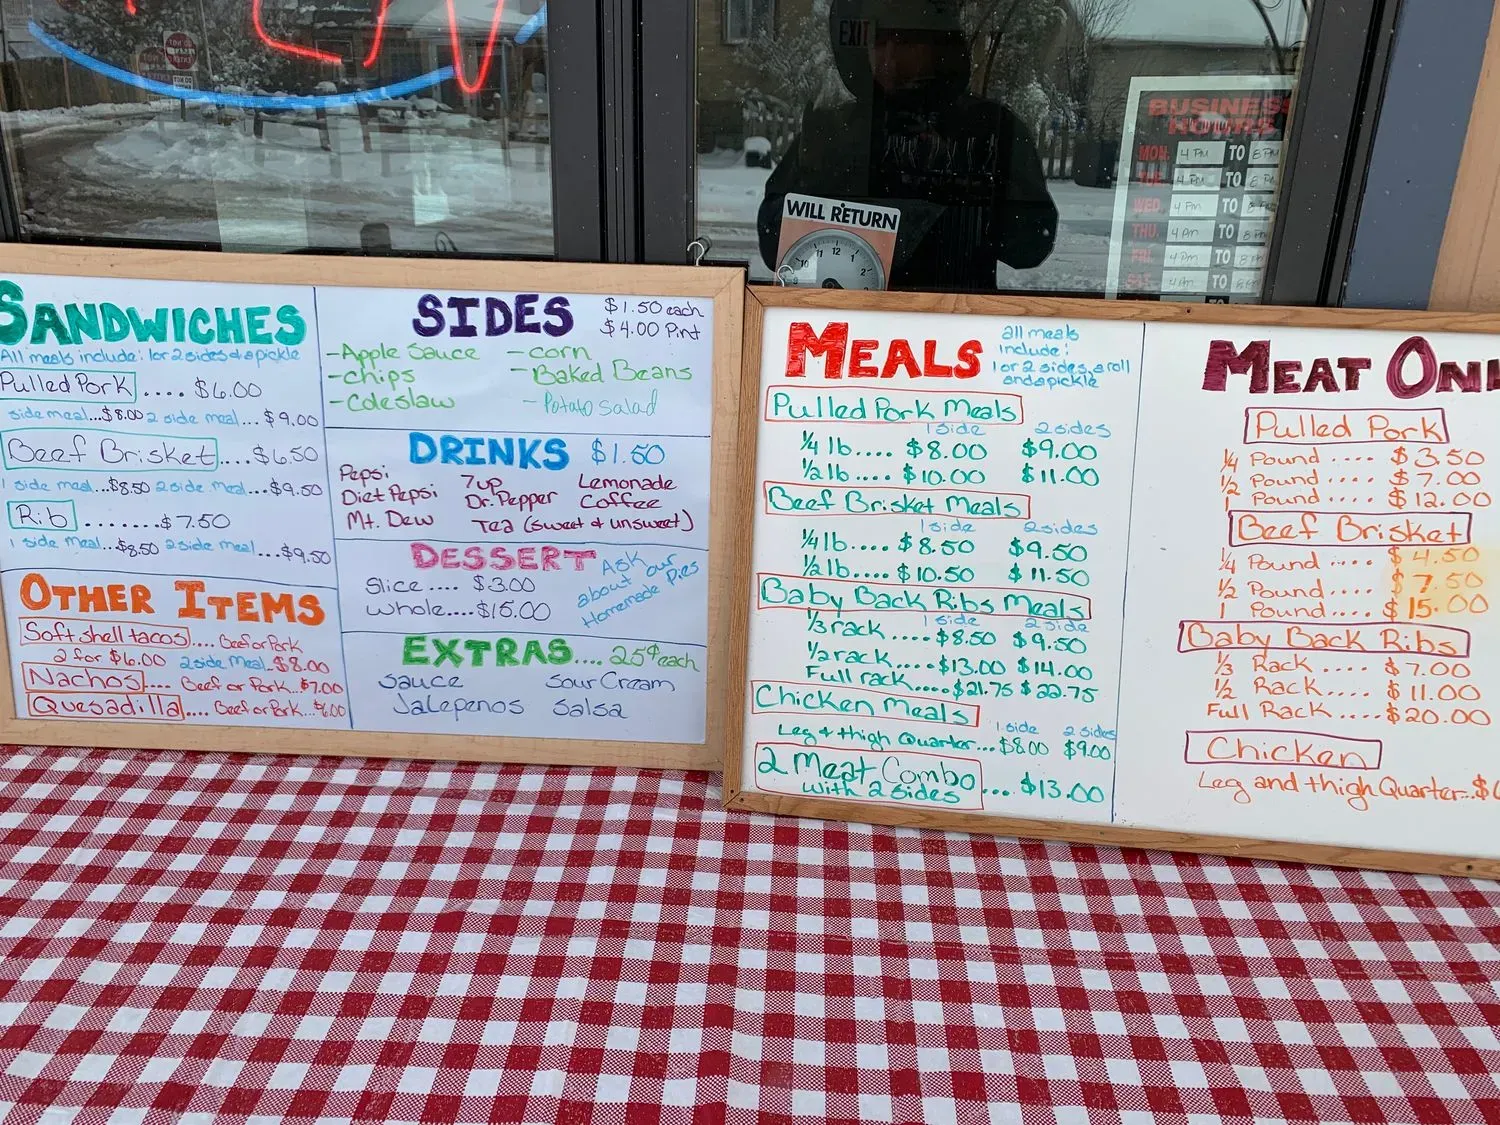 EXIT
WILL RETURN
10 11 12 1 2
BUSINESS
HOURS
MON. 4 PM TO 8 PM
TUE. 4 PM TO 8 PM
WED. 4 PM TO 8 PM
THU. 4 PM TO 8 PM
FRI. 4 PM TO 8 PM
SAT. 4 PM TO
SANDWICHES
All meals include: 1 or 2 sides & a pickle
Pulled Pork .... $6.00
side meal...$8.00 2 side meal... $9.00
Beef Brisket....$6.50
1 side meal...$8.50 2 side meal...$9.50
Rib .......$7.50
1 side meal...$8.50 2 side meal...$9.50
OTHER ITEMS
Soft shell tacos.... Beef or Pork
2 for $6.00 2 side meal..$8.00
Nachos.... Beef or Pork...$7.00
Quesadilla.... Beef or Pork...$6.00
SIDES $1.50 each
$4.00 Pint
-Apple Sauce -corn
-chips -Baked Beans
-Coleslaw -Potato Salad
DRINKS $1.50
Pepsi 7up Lemonade
Diet Pepsi Dr. Pepper Coffee
Mt. Dew Tea (sweet & unsweet)
DESSERT
Slice .... $3.00
whole....$15.00
Ask
about our
Homemade Pies
EXTRAS.... 25¢ each
Sauce Sour Cream
Jalepenos Salsa
MEALS
all meals
include:
1 or 2 sides, a roll
and a pickle
Pulled Pork Meals
1 side 2 sides
1/4 lb.... $8.00 $9.00
1/2 lb.... $10.00 $11.00
Beef Brisket Meals
1 side 2 sides
1/4 lb.... $8.50 $9.50
1/2 lb.... $10.50 $11.50
Baby Back Ribs Meals
1 side 2 side
1/3 rack ....$8.50 $9.50
1/2 rack.....$13.00 $14.00
Full rack.....$21.75 $22.75
Chicken Meals
1 side 2 sides
Leg & thigh Quarter...$8.00 $9.00
2 Meat Combo
with 2 sides ... $13.00
MEAT ONL
Pulled Pork
1/4 Pound .... $3.50
1/2 Pound .... $7.00
1 Pound .... $12.00
Beef Brisket
1/4 Pound .... $4.50
1/2 Pound .... $7.50
1 Pound .... $15.00
Baby Back Ribs
1/3 Rack .... $7.00
1/2 Rack.... $11.00
Full Rack .... $20.00
Chicken
Leg and thigh Quarter..$